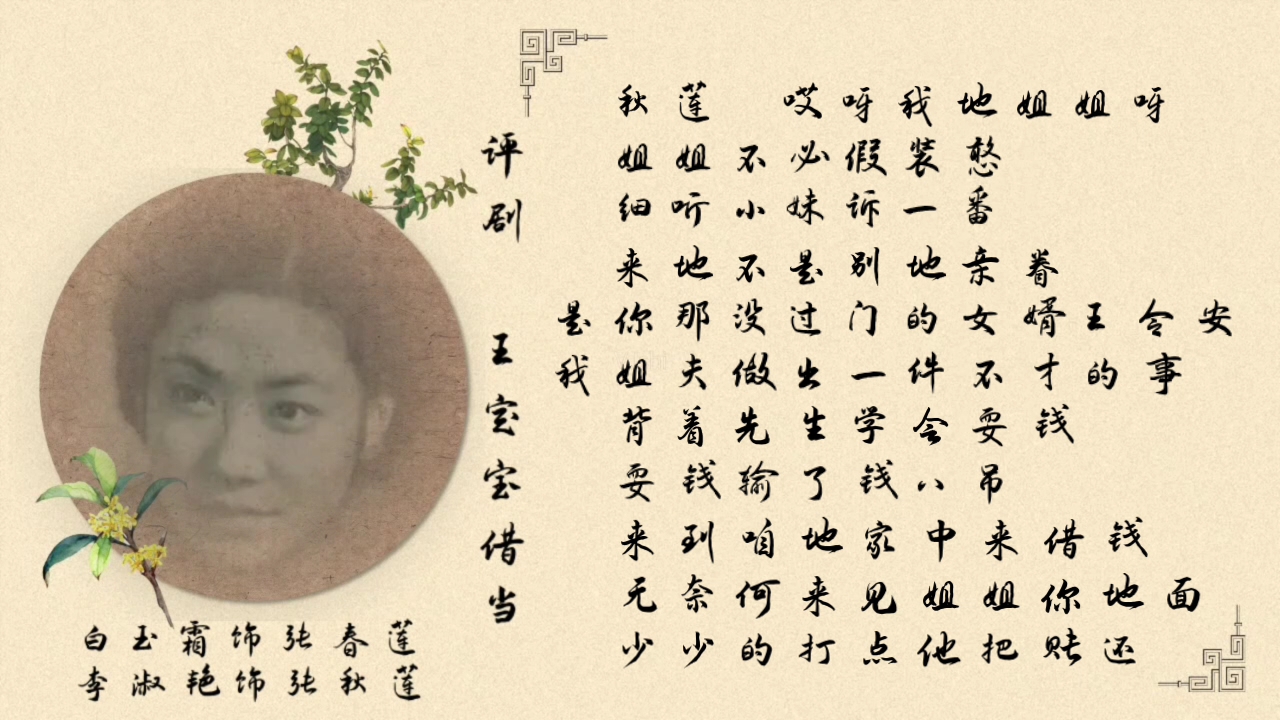 评剧 王宝宝借当
秋莲 哎呀我地姐姐呀
姐姐不必假装憨
细听小妹诉一番
来地不是别地亲眷
是你那没过门的女婿王令安
我姐夫做出一件不才的事
背着先生学会耍钱
耍钱输了钱八吊
来到咱地家中来借钱
无奈何来见姐姐你地面
少少的打点他把账还
白玉霜饰张春莲
李淑艳饰张秋莲